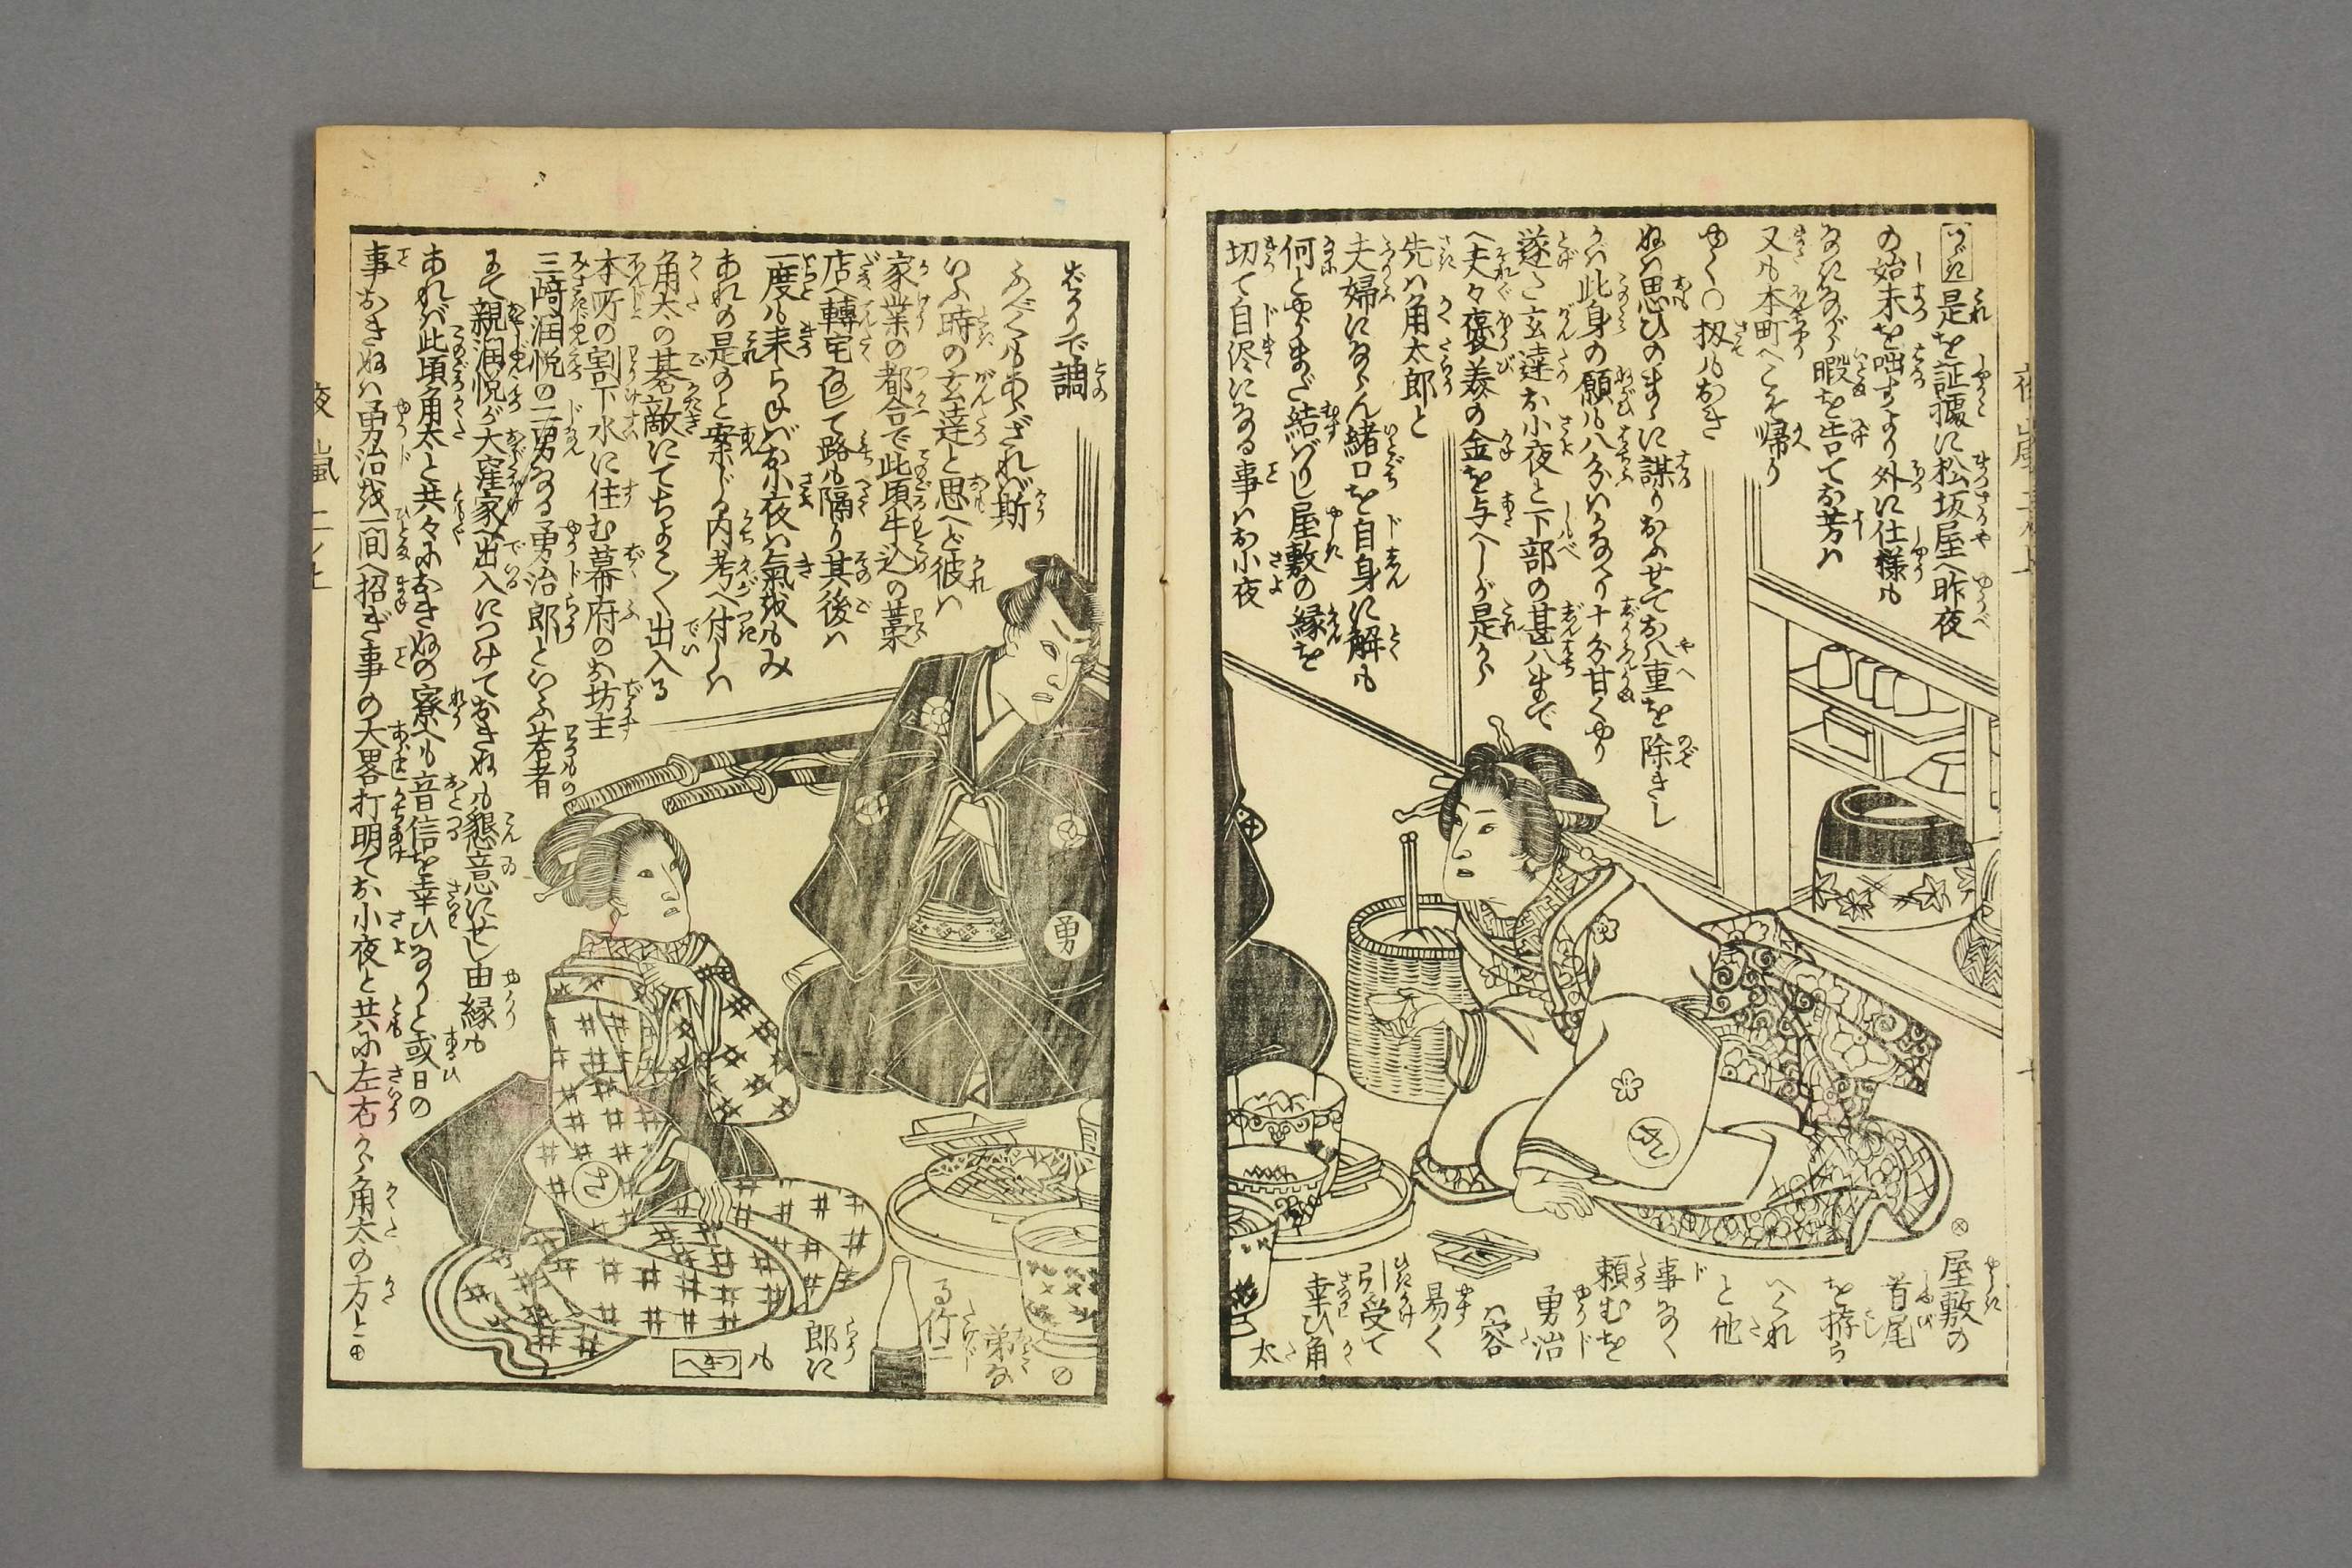 つゞき是を証拠に松坂屋へ昨夜
の始末を咄すより外に仕様も
なになら暇を告てお芳は
又も本町へこそ帰り
ゆく○扨もおき
ぬは思ひのまゝに謀りおふせてお八重を除きし
かば此身の願も八分はかなへり十分甘くゆり
遂た玄達お小夜と下部の甚八まで
へ夫々褒美の金を与へしが是から
先は角太郎と
夫婦にならん緒口を自身に解も
何とやらまだ結ばりし屋敷の縁を
切て自侭になる事はお小夜
屋敷の
首尾
を拵ら
へくれ
と他
事なく
頼むを
勇治
は容
易く
引受て
幸ひ角
太
ばかりで調
ふべくもあらざれば斯
いふ時の玄達と思へど彼は
家業の都合で此頃牛込の藁
店へ轉宅なして路も隔り其後は
一度も来らねばお小夜は氣をもみ
あれの是のと案じる内考へ付しは
角太の碁敵にてちよく〳〵出入る
本所の割下水に住む幕府のお坊主
三﨑润悦の二男なる勇治郎といふ若者
まて親润悦が大窪家へ出入につけておきぬも懇意にせし由縁も
あれば此頃角太と共々におきぬの寮へも音信を幸ひなりと或日の
事おきぬは勇治を一間へ招ぎ事の大畧打明てお小夜と共に左右から角太の方と
弟な
る竹二
郎に
も
つぎへ
勇
きぬ
夜嵐 二ノ上